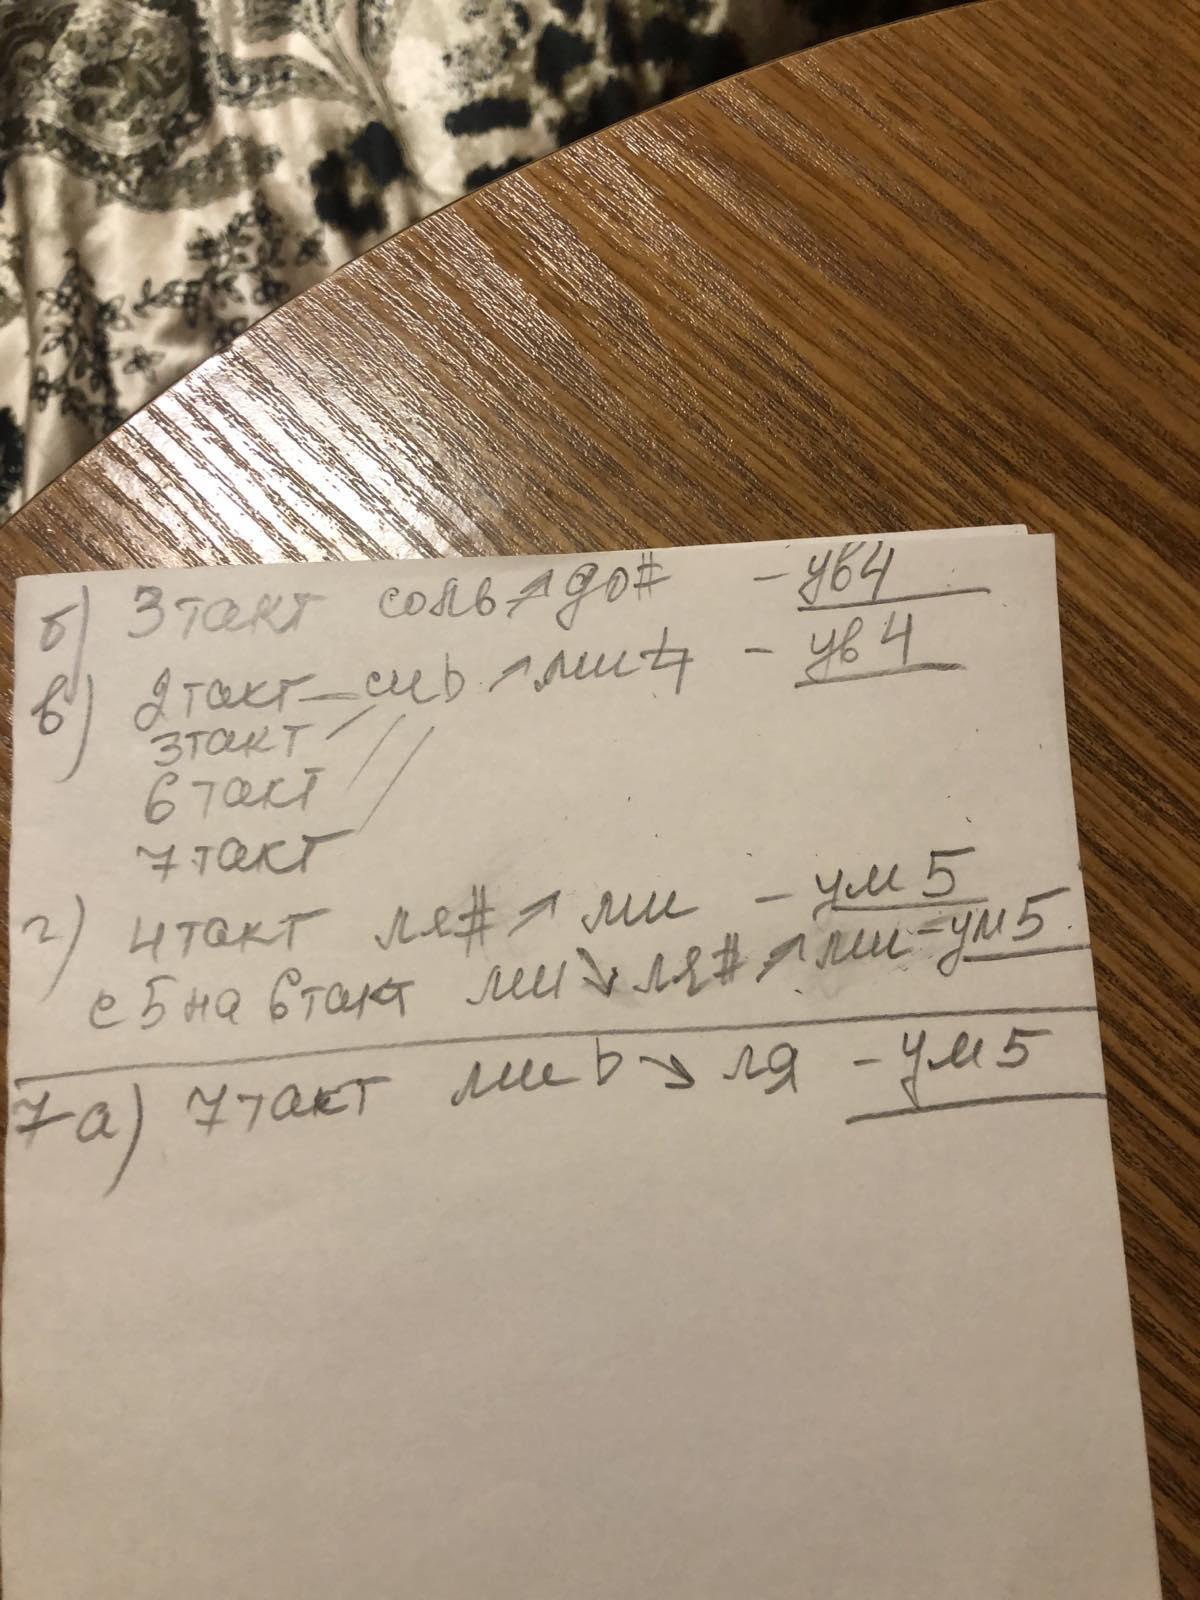 б) 3 такт соль ↗ до# - ув4
в) 2 такт - сиb ↗ ми♮ - ув4
3 такт
6 такт
7 такт
г) 4 такт ля# ↗ ми - ум5
с 5 на 6 такт ми ↘ ля# ↗ ми - ум5
7 а) 7 такт миb ↘ ля - ум5